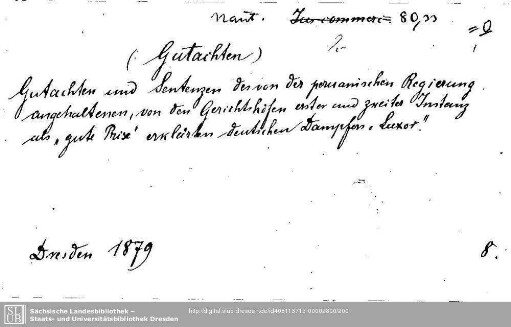 naut. Jus commerc. 80,33 =2
(Gutachten)
Gutachten und Sentenzen des von der peruanischen Regierung
angehaltenen, von den Gerichtshöfen erster und zweiter Instanz
als „gute Prise" erklärten deutschen Dampfers „Luxor."
Dresden 1879 8.
Sächsische Landesbibliothek –
Staats- und Universitätsbibliothek Dresden